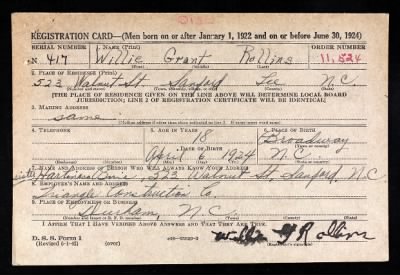 REGISTRATION CARD—(Men born on or after January 1, 1922 and on or before June 30, 1924)
SERIAL NUMBER 1. NAME (Print) ORDER NUMBER
N 417 Willie Grant Rollins 11,524
2. PLACE OF RESIDENCE (Print)
523 Walnut St Sanford Lee N.C.
[THE PLACE OF RESIDENCE GIVEN ON THE LINE ABOVE WILL DETERMINE LOCAL BOARD
JURISDICTION; LINE 2 OF REGISTRATION CERTIFICATE WILL BE IDENTICAL]
3. MAILING ADDRESS
same
[Mailing address if other than place indicated on line 2. If same insert word same]
4. TELEPHONE 5. AGE IN YEARS 6. PLACE OF BIRTH
18 Broadway
DATE OF BIRTH
April 6 1924 N.C.
7. NAME AND ADDRESS OF PERSON WHO WILL ALWAYS KNOW YOUR ADDRESS
523 Walnut St, Sanford, N.C.
8. EMPLOYER'S NAME AND ADDRESS
Triangle Construction Co.
9. PLACE OF EMPLOYMENT OR BUSINESS
Durham, N.C.
I AFFIRM THAT I HAVE VERIFIED ABOVE ANSWERS AND THAT THEY ARE TRUE.
D. S. S. Form 1
(Revised 6-1-42)
Willie G Rollins